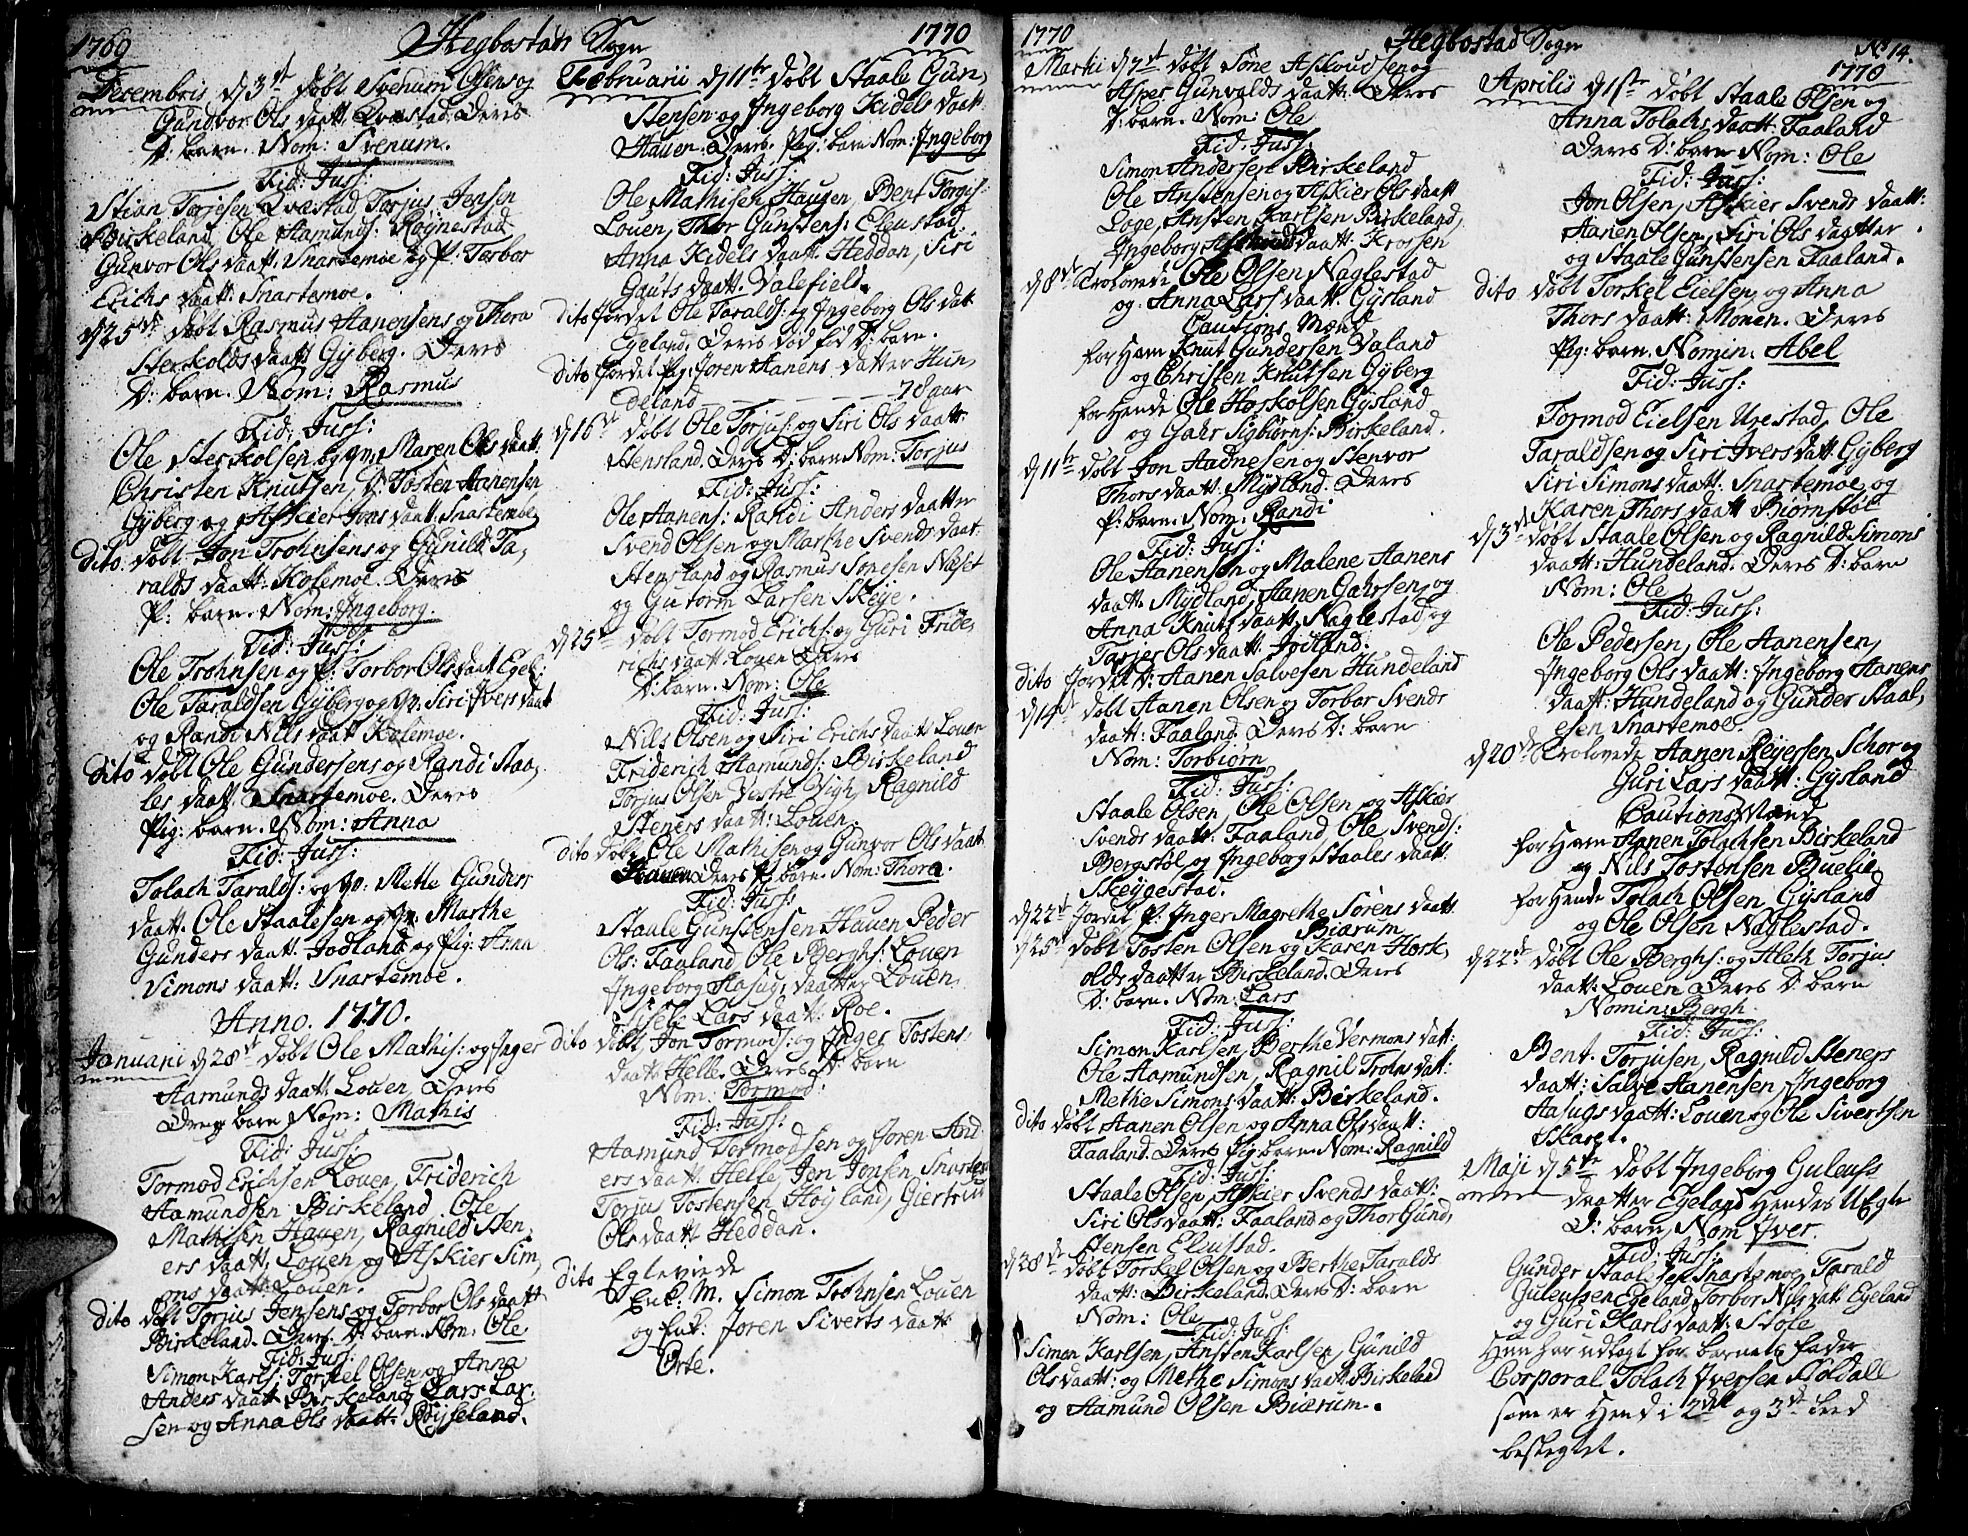 1769 Hegbostads Sogn 1770
Decembris d 3de døbt Svenum Olsens og
Gundvor Ols daatt. Qvæstad. Deres
D: barn. Nom: Svenum.
Fid: Juss:
Stian Torjesen Qvæstad Torjus Jensen
Birkeland, Ole Aamunds: Røynestad
Gunvor Ols daatt. Snartemoe og P. Torbor
Erichs daatt: Snartemoe.
d 25de døbt Rasmus Aanensens og Thora
Herkolds daatt Gyberg. Deres
D: barn. Nom: Rasmus
Fid: Juss:
Ole Herkolsen og qv. Maren Ols daatt.
Christen Knutsen, D. Tosten Aanensen
Gyberg og Askier Jons daatt. Snartemoe
dito døbt Jon Trohnsens og Gunild Ta,
ralds daatt: Kolemoe. Deres
P: barn. Nom: Ingeborg.
Fid: Juss:
Ole Trohnsen og P: Torbor Ols daat Egel:
Ole Taraldsen Gyberg og qv. Siri Ivers daat
og Randi Nils daatt Kolemoe.
dito døbt Ole Gundersens og Randi Staa,
les daatt. Snartemoe. Deres
Pig: barn. Nom: Anna
Fid: Juss:
Tolach Taralds: og qv: Methe Gunders
daatt. Ole Staalesen og qv. Marthe
Gunders daatt. Jodland og Pig: Anna
Simons daatt: Snartemoe.
Anno. 1770.
Januarii d 28de døbt Ole Mathis: og Inger
Aamunds daatt. Louen, Deres
Dreng barn Nom: Mathis
Fid: Juss:
Tormod Erichsen Louen, Friderich
Aamundsen Birkeland, Ole
Mathisen Hauen, Ragnild Sten,
ers daatt. Louen og Askier Sim,
ons daatt: Louen.
dito døbt Torjus Jensens og Torbor Ols daatt
Birkeland. Deres D: barn. Nom: Ole
Fid: Juss:
Simon Karls: Torkel Olsen og Anna
Anders daatt Birkeland, Lars Lar,
sen og Anna Ols daatt. Røysseland.
Februarii d 11te døbt Staale Gun,
stensen og Ingeborg Kidels daatt
Hauen. Deres. Pig: barn Nom: Ingeborg
Fid: Juss:
Ole Mathisen Hauen, Bent Torgis:
Louen, Thor Gunstens: Eleustad
Anna Kidels daatt. Heddan, Siri
Gauts daatt. Valefield.
dito Jordet Ole Taralds: og Ingeborg Ols dat
Egeland. Deres død fød D: barn.
dito Jordet Pig: Joren Aanens datter Hun,
deland 78 aar
d 16de døbt Ole Torjus: og Siri Ols daatt.
Stensland. Deres D: barn Nom: Torjus
Fid: Juss:
Ole Aanens: Randi Anders daatter
Svend Olsen og Marthe Svends daat:
Stensland og Rasmus Sonesen Næset
og Gutorm Larsen Skeije.
d 25de døbt Tormod Erichs: og Guri Fride,
richs daatt. Louen Deres
D: barn. Nom: Ole
Fid: Juss:
Nils Olsen og Siri Erichs daatt Louen
Friderich Aamunds: Birkeland
Torjus Olsen Vestre Vigh, Ragnild
Steners daatt: Louen.
dito døbt Ole Mathisen og Gunvor Ols daatt
Hauen Deres P. barn. Nom: Thora.
Fid: Juss:
Staale Gunstensen Hauen Peder
Ols: Faaland, Ole Berghs: Louen
Ingeborg Aasug, daatter Louen,
Lars daatt: Roe.
dito døbt Jon Tormods: og Inger Tostens,
daatt. Helle. Deres D: barn
Nom: Tormod.
Fid: Juss:
Aamund Tormodsen og Joren And:
ers daatt. Helle, Jon Jonsen Snartem
Torjus Tostensen Høyland, Giertrud
Ols daatt Heddan.
dito Egteviede
Enk: M. Simon Trohnsen Louen
og Enk: Joren Siverts daatt
Orte.
1770 Hegbostad Sogn No 14.
1770
Martii d 7de døbt Sone Askoudsen og
Asper Gunvalds daatt. Deres
D: barn. Nom: Ole
Fid: Juss:
Simon Andersen Birkeland
Ole Anstensen og Askier Ols daatt
Loge, Ansten Karlsen Birkeland,
Ingeborg Askouds daatt. Krossen
d 8de Trolovede Ole Olsen Naglestad
og. Anna Lars daatt. Gysland
Cautions Mænd
for Ham Knut Gundersen Valand
og Christen Knutsen Gyberg
for Hende Ole Hoskolsen Gysland
og Gahr Sigbiørns: Birkeland.
d 11te døbt Jon Aadnesen og Stenvor
Thors daatt. Mydland. Deres
P: barn. Nom: Randi
Fid: Juss:
Ole Aanensen og Malene Aanens
daatt. Mydland, Aanen Gahrsen, og
Anna Knuts daatt. Naglestad, og
Tarjer Ols daatt. Jodland:
dito Jordet D: Aanen Salvesen Hundeland
d 14de døbt Aanen Olsen og Torbor Svends
daatt: Faaland Deres D: barn
Nom: Torbiørn
Fid: Juss:
Staale Olsen, Ole Olsen, og Askier
Svends daatt. Faaland, Ole Svends:
Bergstøl og Ingeborg Staales daatt.
Skeygestad.
d 22de Jordet P: Inger Magrethe Sørens daatt.
Biærum
d 25de døbt Tosten Olsen og Karen Hork,
olds daatter Birkeland. Deres
D: barn. Nom: Lars
Fid: Juss:
Simon Karlsen, Berthe Vermons datt:
Ole Aamundsen, Ragnil Trons datt:
Methe Simons daatt: Birkeland.
dito døbt Aanen Olsen og Anna Ols daatt:
Faaland. Deres Pig barn. Nom: Ragnild
Fid: Juss:
Staale Olsen, Askier Svends daatt:
Siri Ols daatt: Faaland og Thor Gund,
stensen Eleustad.
d 28de døbt Torkel Olsen og Berthe Taralds
daatt: Birkeland. Deres D: barn
Nom: Ole
Fid: Juss:
Simon Karlsen, Ansten Karlsen, Gunild
Ols daatt: og Methe Simons daatt. Birkeland
og Aamund Olsen Biærum.
Aprilis d 1ste døbt Staale Olsen og
Anna Tolachs daatt. Faaland
Deres D: barn Nom: Ole
Fid: Juss:
Jon Olsen, Askier Svends daatt:
Aanen Olsen, Siri Ols daatter
og Staale Gunstensen Faaland.
dito døbt Torkel Eielsen og Anna
Thors daatt: Monen. Deres
Pig: barn. Nomin: Abel
Fid: Juss:
Tormod Eielsen Urestad, Ole
Taraldsen og Siri Ivers datt. Gyberg
Siri Simons daatt. Snartemoe og
Karen Thors daatt Biørnstøl
d 3de døbt Staale Olsen og Ragnild Simons
daatt: Hundeland. Deres D: barn
Nom: Ole
Fid: Juss:
Ole Pedersen, Ole Aanensen,
Ingeborg Ols daatt: Ingeborg Aanens
daatt: Hundeland og Gunder Staal,
esen Snartemoe.
d 20de Trolovede Aanen Reyersen Schor og
Guri Lars daatt: Gysland
Cautions Mænd
for Ham Aanen Tolachsen Birkeland
og Nils Tostensen Buelia
for Hende Tolach Olsen Gysland
og Ole Olsen Naglestad.
d 22de døbt Ole Berghs: og Aleth Torjus
daatt: Louen Deres D: barn
Nomin: Bergh.
Fid: Juss:
Bent. Torjusen, Ragnild Steners
daatt: Salve Aanensen, Ingeborg
Aasugs daatt: Louen og Ole Sivertsen
Skaret.
Maji d 5te døbt Ingeborg Guleufs
daatter Egeland Hendes Uægte
D: barn, Nom Iver.
Fid: Juss:
Gunder Staalesen Snartemoe, Tarald
Guleufsen Egeland, Torbor Nils datt. Egeland
og Guri Karls daatt: Stole
Hun har udlagt for barnets fader
Corporal Tolach Iversen Koldall
som er Hende i 2det og 3de leed
beslegtet.